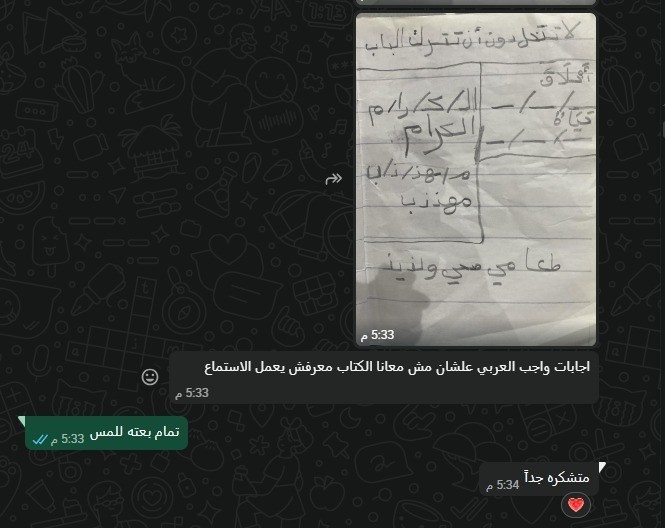 لا تتحل دون أن تترك الباب
أخلاق
ا/ل/ك/ر/ا/م
— / — / —
الكرام
حياة
— / — / —
م/ه/ذ/ذ/ب
مهذذب
طعامي صحي ولذيذ
5:33 م
اجابات واجب العربي علشان مش معانا الكتاب معرفش يعمل الاستماع
5:33 م
تمام بعته للمس
5:33 م
متشكره جداً
5:34 م